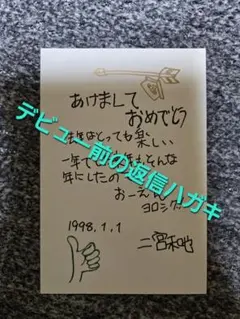 あけまして
おめでとう
去年はとっても楽しい
一年で
そんな
年にしたの
おーえん
ヨロシク
1998.1.1
二宮和也
デビュー前の返信ハガキ